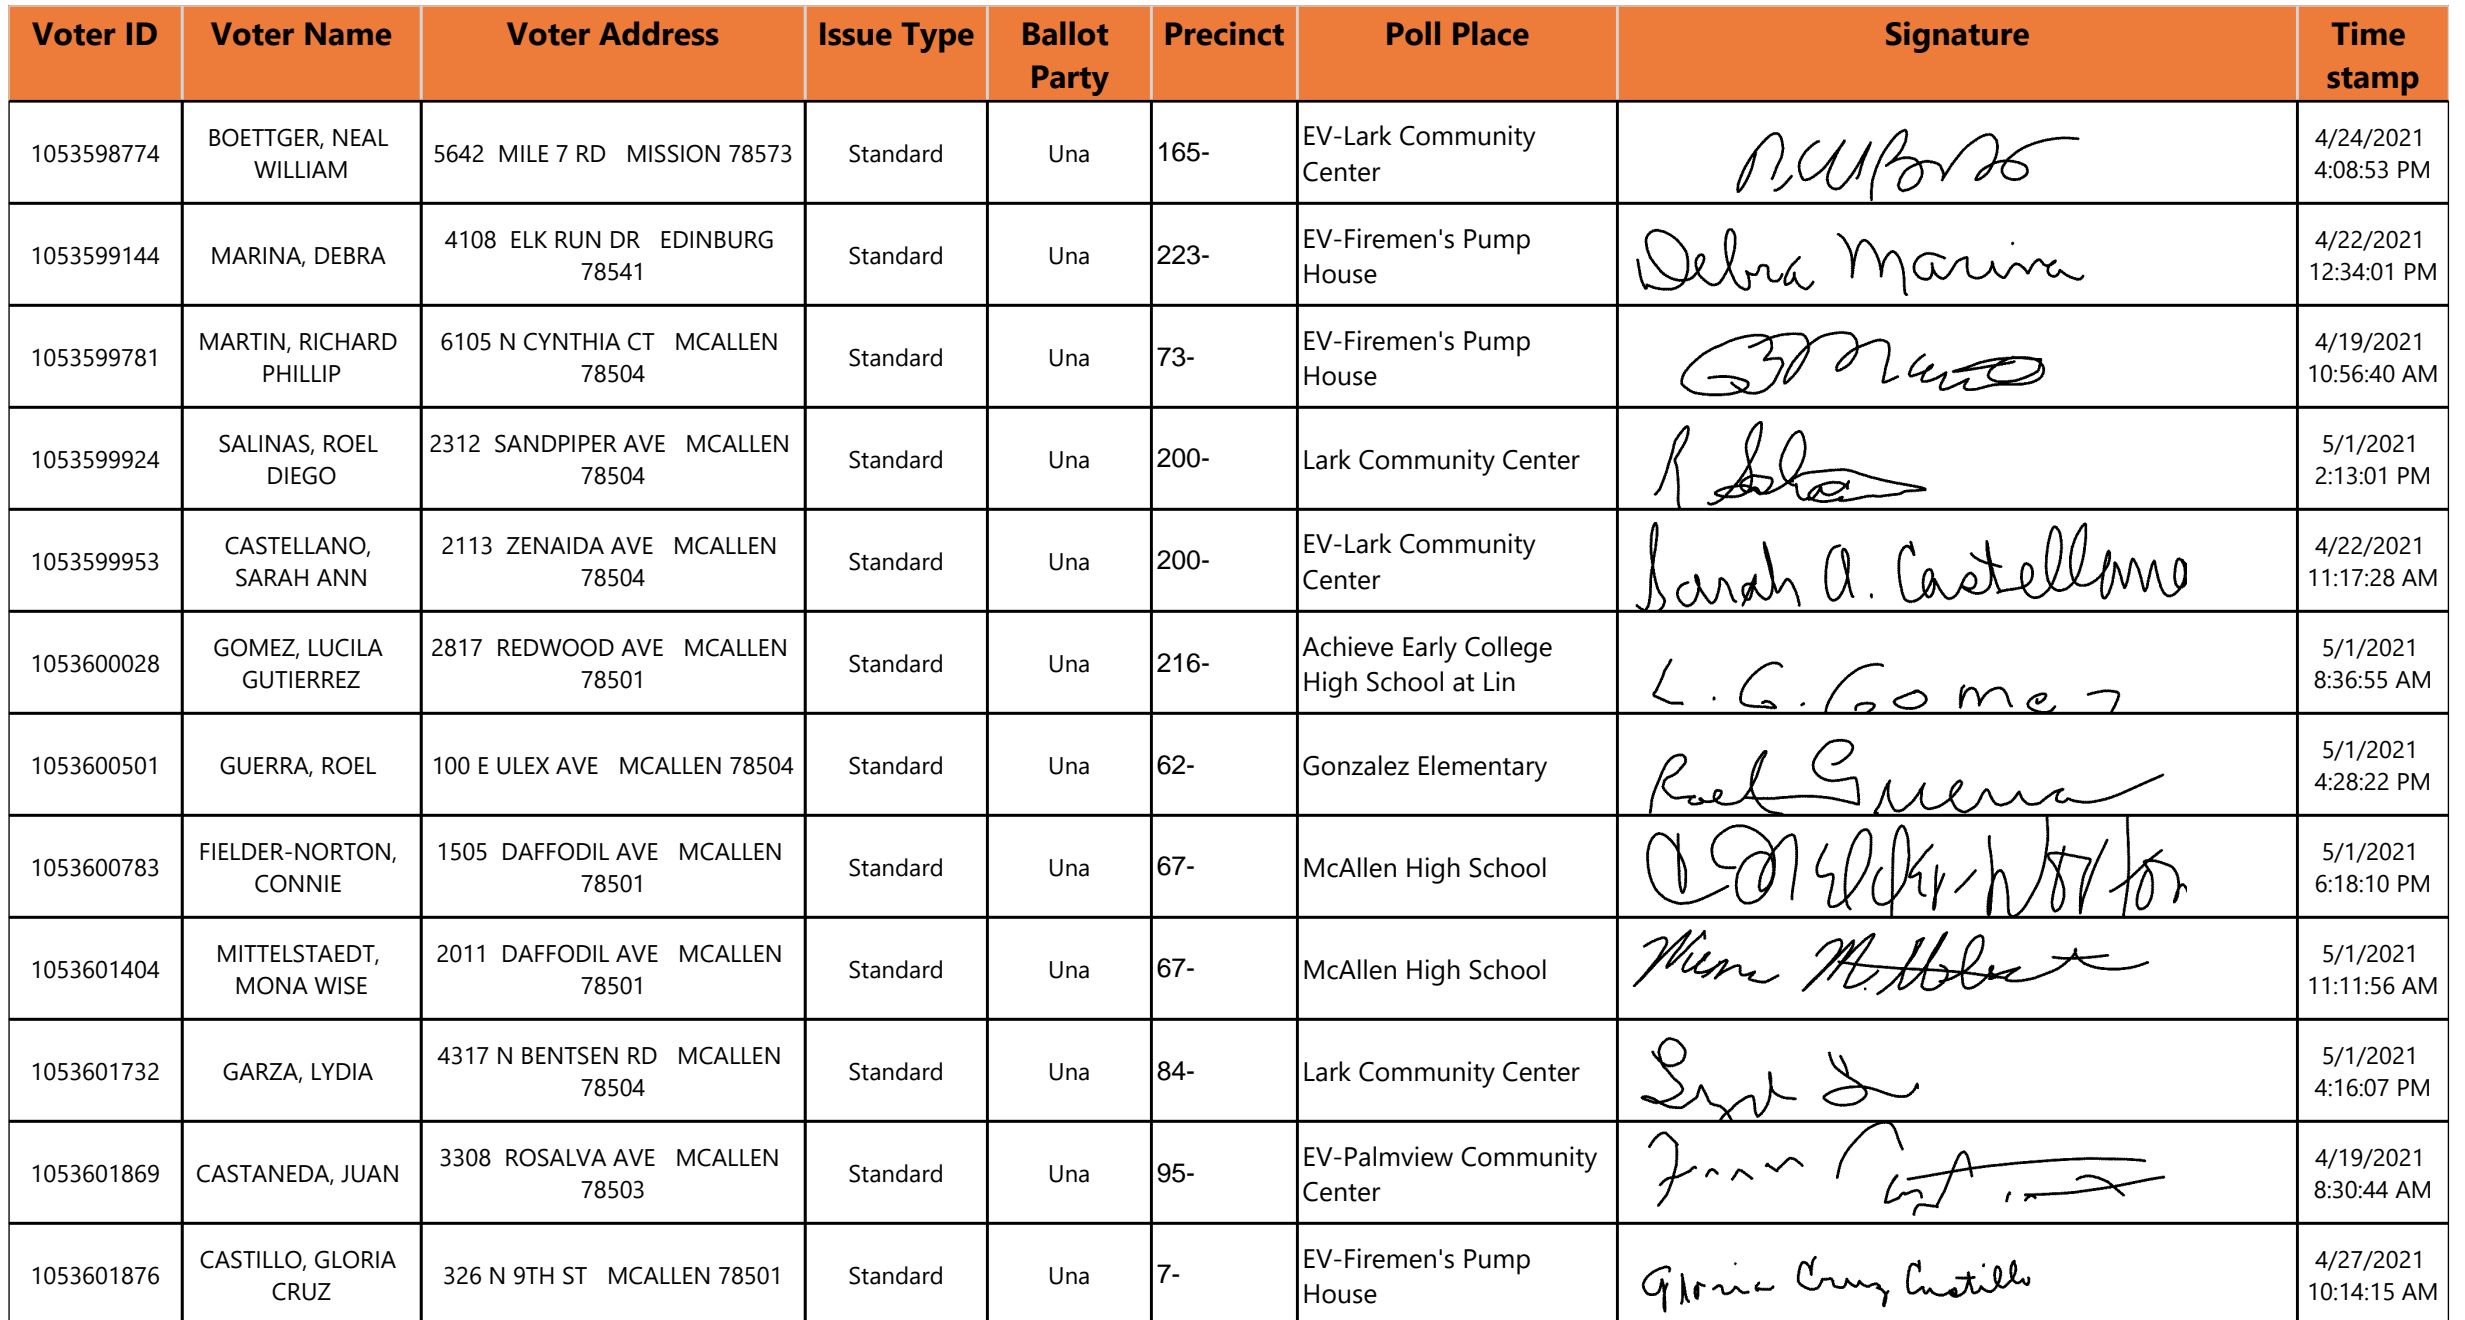 Voter ID Voter Name Voter Address Issue Type Ballot Party Precinct Poll Place Signature Time stamp
1053598774 BOETTGER, NEAL WILLIAM 5642 MILE 7 RD MISSION 78573 Standard Una 165- EV-Lark Community Center 4/24/2021 4:08:53 PM
1053599144 MARINA, DEBRA 4108 ELK RUN DR EDINBURG 78541 Standard Una 223- EV-Firemen's Pump House Debra Marina 4/22/2021 12:34:01 PM
1053599781 MARTIN, RICHARD PHILLIP 6105 N CYNTHIA CT MCALLEN 78504 Standard Una 73- EV-Firemen's Pump House 4/19/2021 10:56:40 AM
1053599924 SALINAS, ROEL DIEGO 2312 SANDPIPER AVE MCALLEN 78504 Standard Una 200- Lark Community Center 5/1/2021 2:13:01 PM
1053599953 CASTELLANO, SARAH ANN 2113 ZENAIDA AVE MCALLEN 78504 Standard Una 200- EV-Lark Community Center Sarah A. Castellano 4/22/2021 11:17:28 AM
1053600028 GOMEZ, LUCILA GUTIERREZ 2817 REDWOOD AVE MCALLEN 78501 Standard Una 216- Achieve Early College High School at Lin L. G. Gomez 5/1/2021 8:36:55 AM
1053600501 GUERRA, ROEL 100 E ULEX AVE MCALLEN 78504 Standard Una 62- Gonzalez Elementary Roel Guerra 5/1/2021 4:28:22 PM
1053600783 FIELDER-NORTON, CONNIE 1505 DAFFODIL AVE MCALLEN 78501 Standard Una 67- McAllen High School 5/1/2021 6:18:10 PM
1053601404 MITTELSTAEDT, MONA WISE 2011 DAFFODIL AVE MCALLEN 78501 Standard Una 67- McAllen High School 5/1/2021 11:11:56 AM
1053601732 GARZA, LYDIA 4317 N BENTSEN RD MCALLEN 78504 Standard Una 84- Lark Community Center 5/1/2021 4:16:07 PM
1053601869 CASTANEDA, JUAN 3308 ROSALVA AVE MCALLEN 78503 Standard Una 95- EV-Palmview Community Center 4/19/2021 8:30:44 AM
1053601876 CASTILLO, GLORIA CRUZ 326 N 9TH ST MCALLEN 78501 Standard Una 7- EV-Firemen's Pump House Gloria Cruz Castillo 4/27/2021 10:14:15 AM